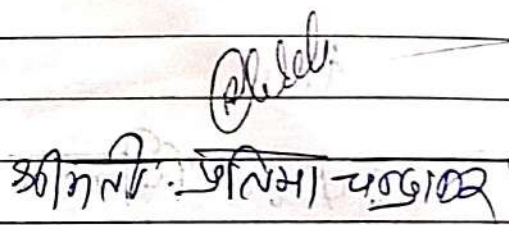 श्रीमती. प्रतिमा चन्द्राकर